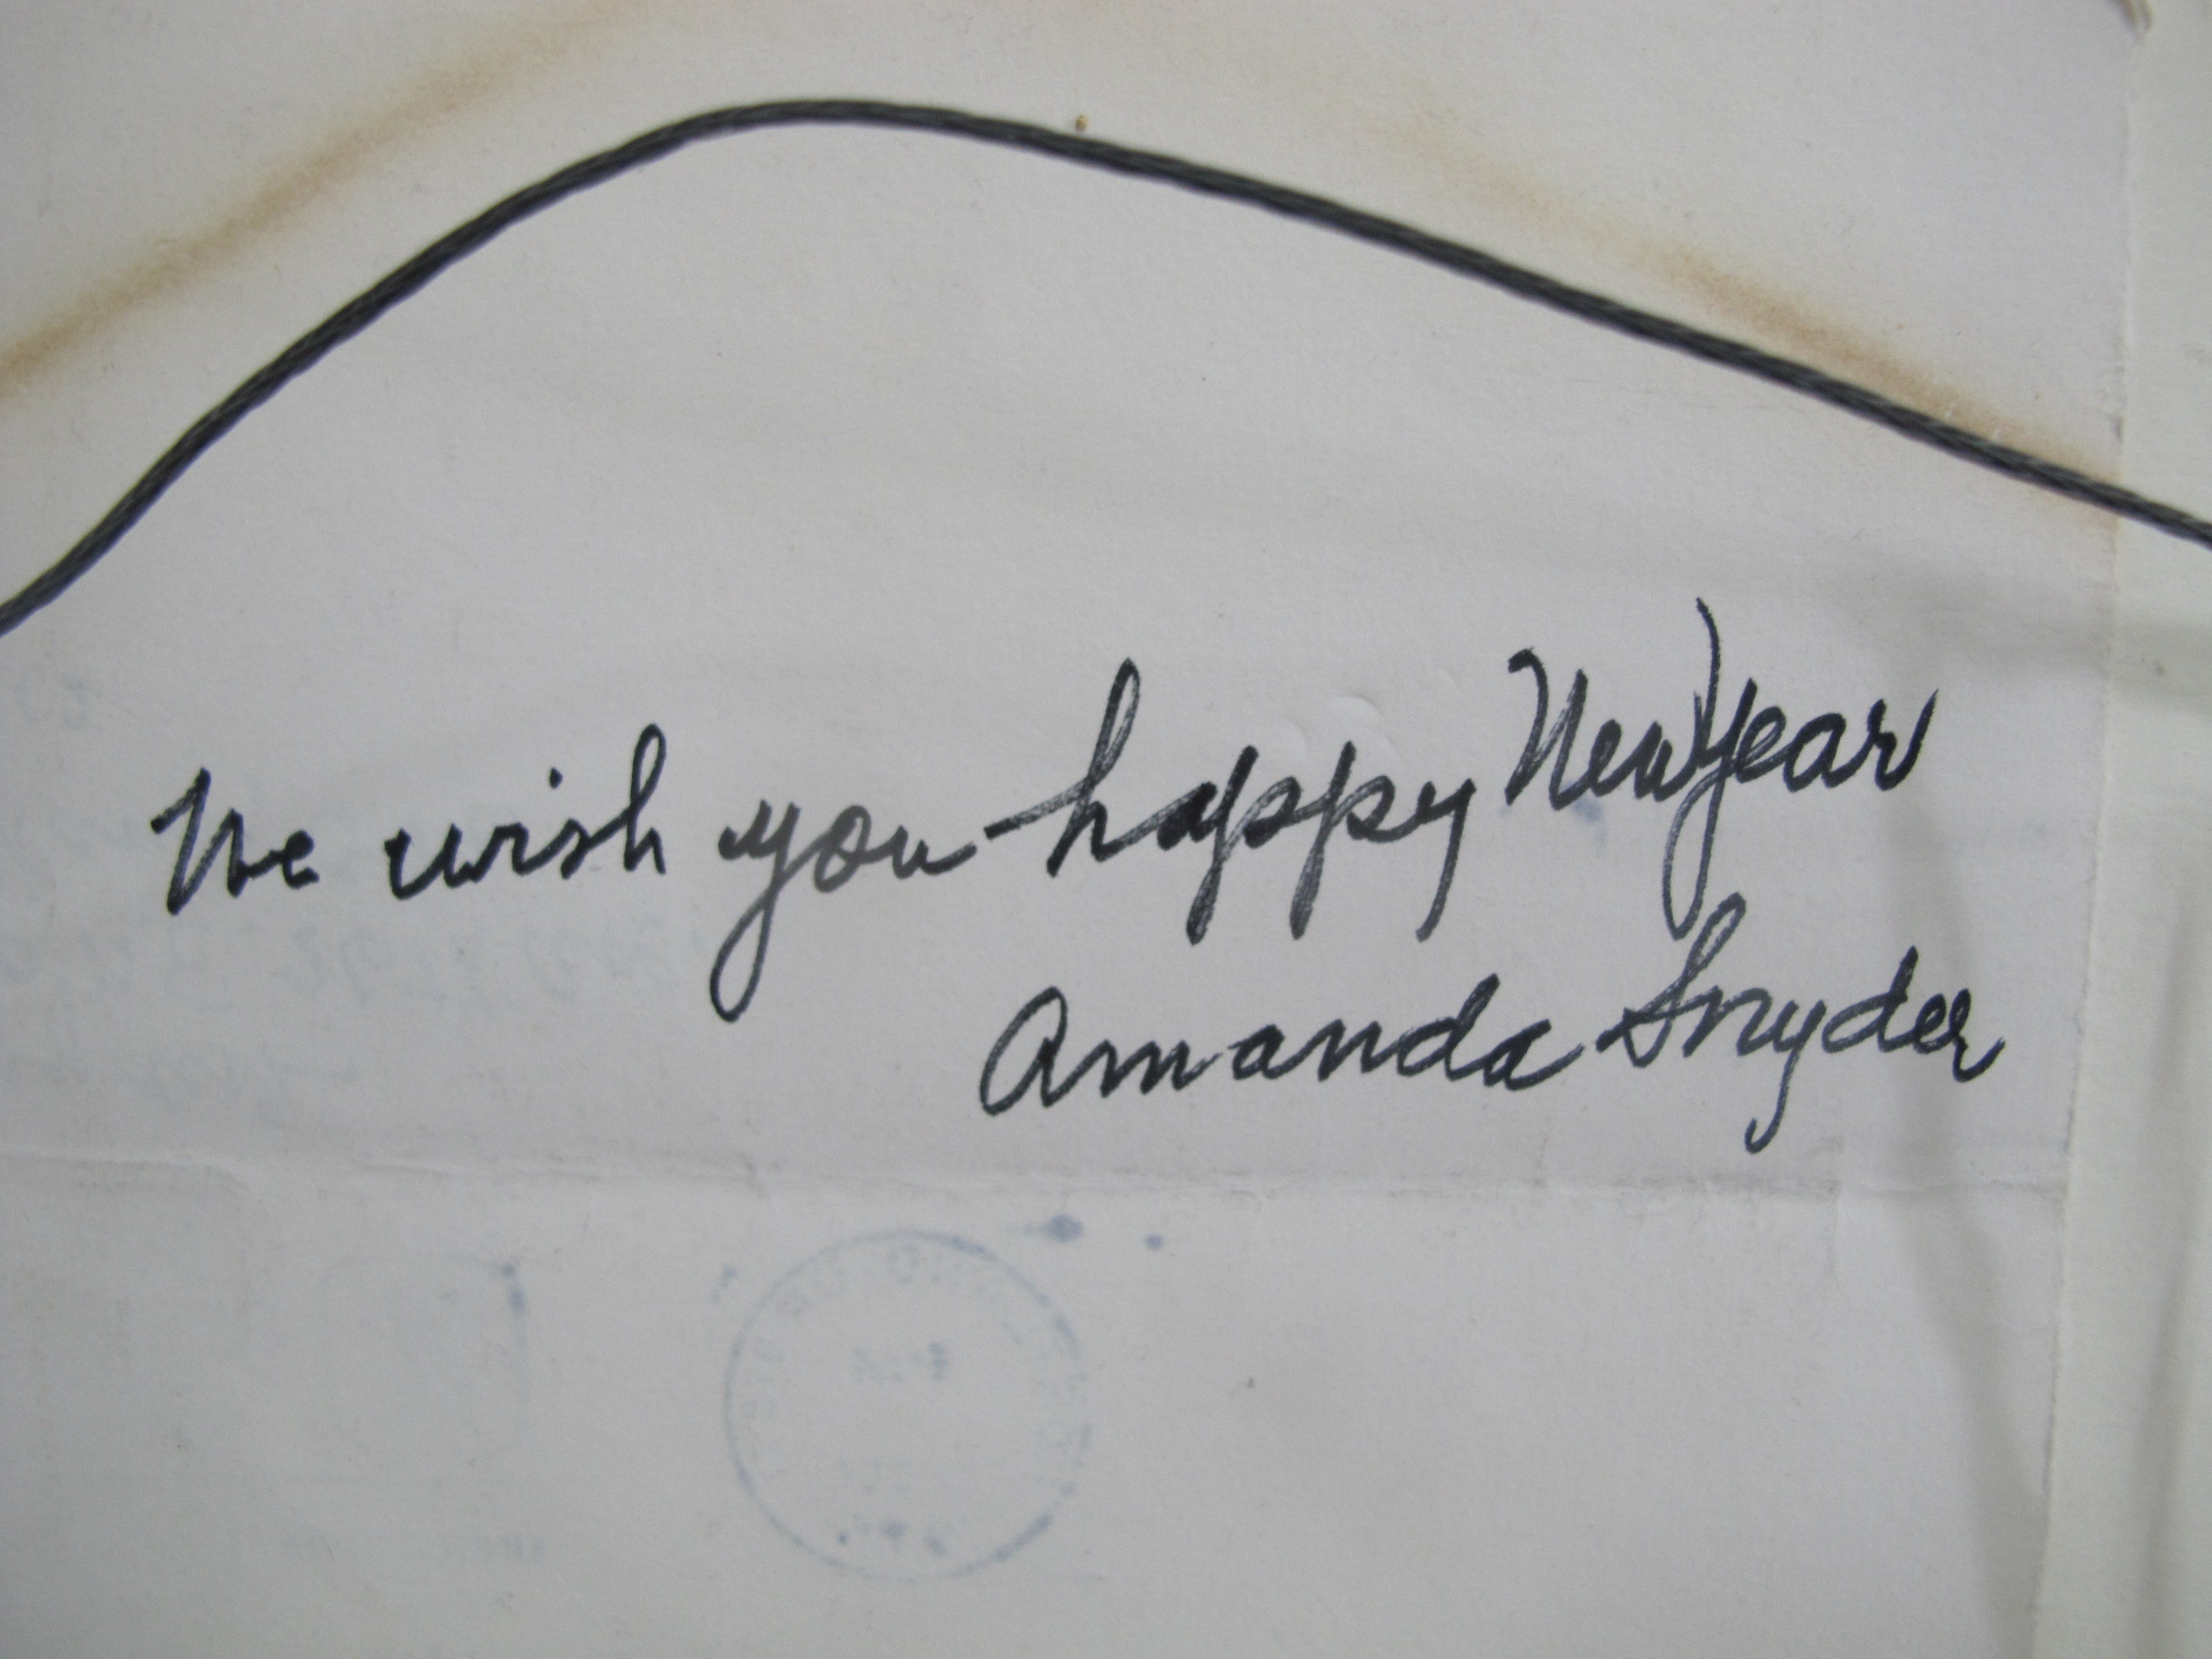 We wish you happy New Year
Amanda Snyder